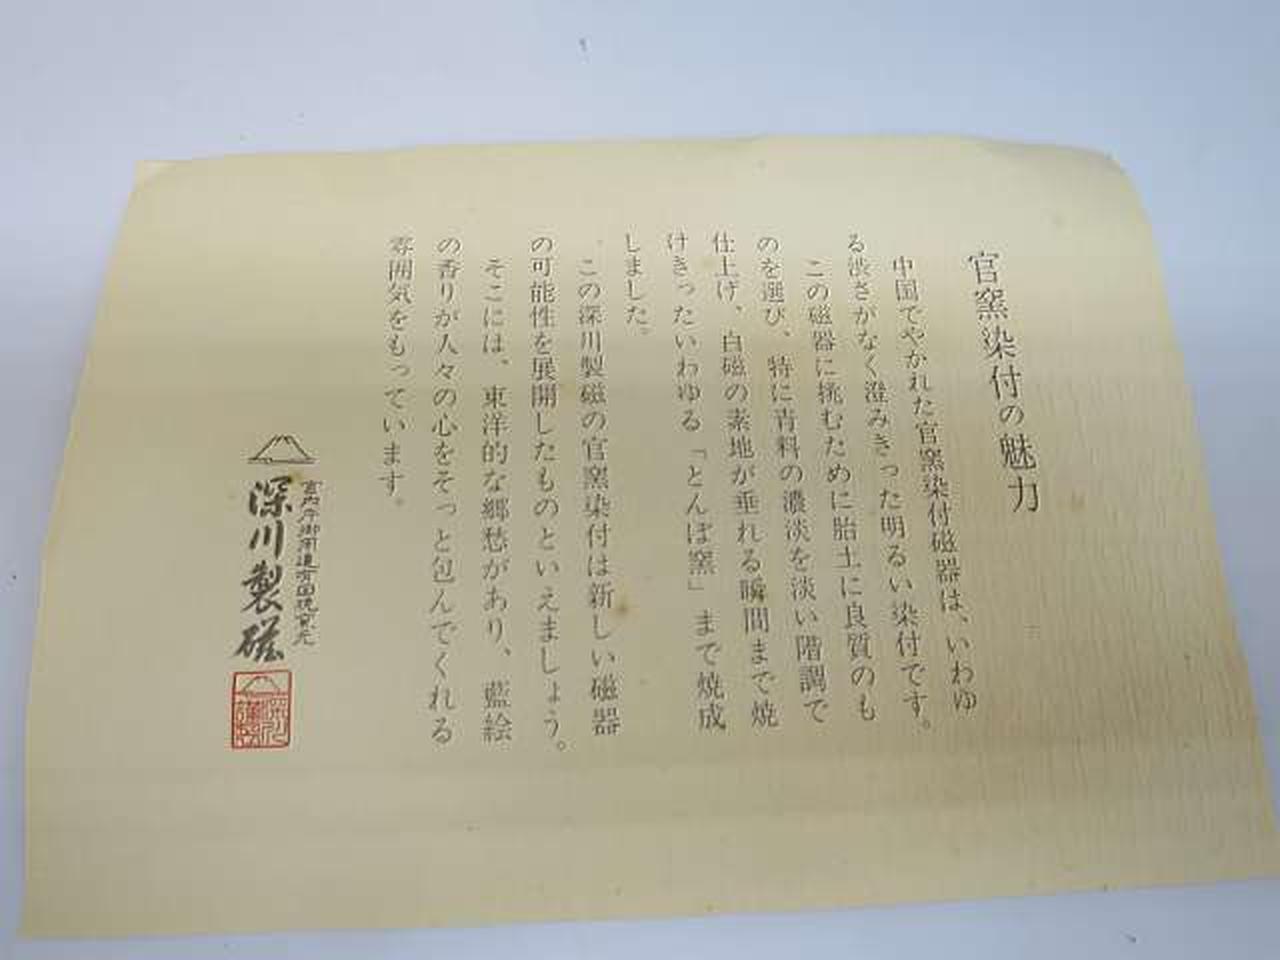 官窯染付の魅力
中国でやかれた官窯染付磁器は、いわゆ
る渋さがなく澄みきった明るい染付です。
この磁器に挑むために胎土に良質のも
のを選び、特に青料の濃淡を淡い階調で
仕上げ、白磁の素地が垂れる瞬間まで焼
けきったいわゆる「とんぼ窯」まで焼成
しました。
この深川製磁の官窯染付は新しい磁器
の可能性を展開したものといえましょう。
そこには、東洋的な郷愁があり、藍絵
の香りが人々の心をそっと包んでくれる
雰囲気をもっています。
宮内庁御用達有田焼窯元
深川製磁